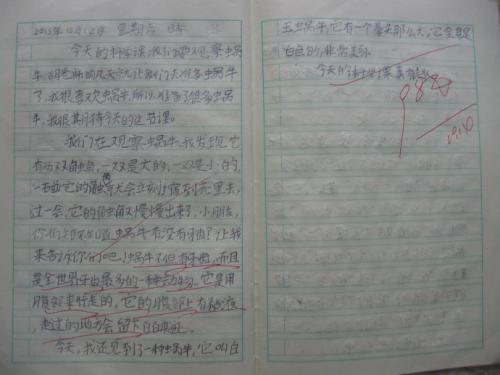 2015年10月12日 星期六 晴
今天的科学课,我们要观察蜗
牛,胡老师前几天就让我们去准备蜗牛
了,我很喜欢蜗牛,所以准备了很多蜗
牛,我很期待今天的这节课。
我们在观察蜗牛,我发现它
有两对触角,一对是大的,一对是小的,
一碰它的触角它会立刻缩到壳里去,
过一会,它的触角又慢慢出来了,小朋友,
你们知不知道蜗牛有没有牙齿?让我
来告诉你们吧,蜗牛不但有牙齿,而且
是全世界牙齿最多的一种动物。它是用
腹部来行走的,它的腹部上有粘液,
走过的地方会留下白
今天,我还见到了一种蜗牛,它叫白
玉蜗牛,它有一个拳头那么大,它全身是
白色的,非常美丽。
今天的科学课真
98
10.10